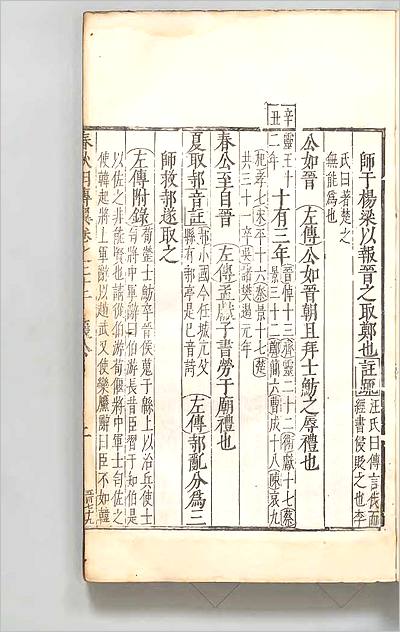 師于楊梁以報晉之取鄭也註疏汪氏曰傳言伐而
經書侵賤之也李
氏曰著楚之
無能爲也
公如晉左傳公如晉朝且拜士魴之辱禮也
辛丑
靈王十
二年
十有三年晉悼十三齊靈二十二衛獻十七蔡
景三十二鄭簡六曹成十八陳哀九
杞孝七宋平十六秦景十七楚
共三十一卒吳諸樊遏元年
春公至自晉左傳孟獻子書勞于廟禮也
夏取邿音註邿小國今任城亢父
縣有邿亭是也音詩
左傳邿亂分爲三
師救邿遂取之
左傳附錄荀罃士魴卒晉侯蒐于緜上以治兵使士
匄將中軍辭曰伯游長昔臣習于知伯是
以佐之非能賢也請從伯游荀偃將中軍士匄佐之
使韓起將上軍辭以趙武又使欒黶辭曰臣不如韓